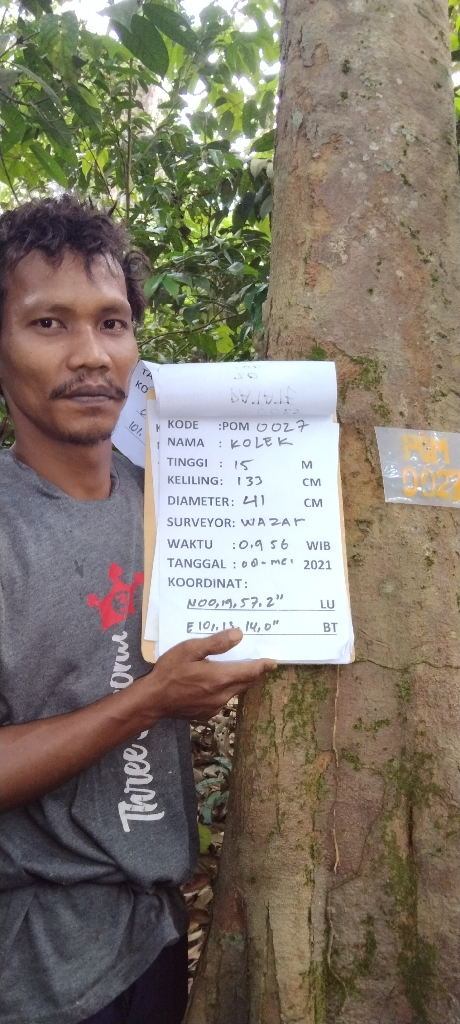 KODE :POM 0027
NAMA : KOLEK
TINGGI : 15 M
KELILING: 133 CM
DIAMETER: 41 CM
SURVEYOR: WAZAR
WAKTU : 0.9 56 WIB
TANGGAL : 00-mei 2021
KOORDINAT:
N00,19,57.2" LU
E101,13,14,0" BT
POM
0027
Three